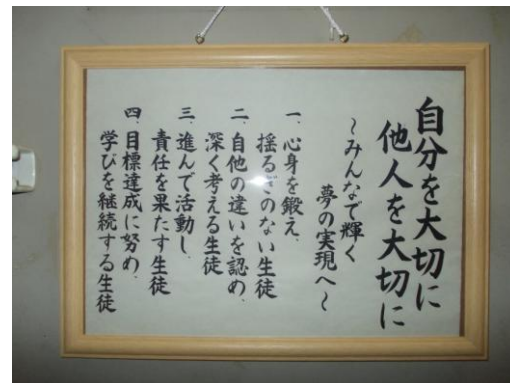 自分を大切に
他人を大切に
～みんなで輝く
夢の実現へ～
一、心身を鍛え、
揺るぎのない生徒
二、自他の違いを認め、
深く考える生徒
三、進んで活動し、
責任を果たす生徒
四、目標達成に努め、
学びを継続する生徒